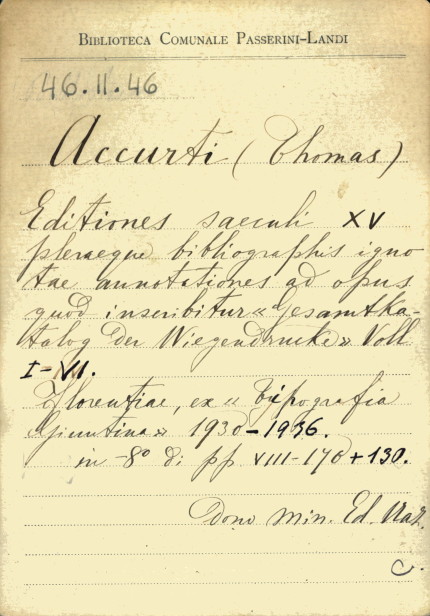 BIBLIOTECA COMUNALE PASSERINI-LANDI
46.11.46
Accurti (Thomas)
Editiones saeculi XV
pleraeque bibliographis igno
tae annotationes ad opus
quod inscribitur «Gesamtka-
talog der Wiegendrucke» Voll
I-VI.
Florentiae, ex «Tipografia
Giuntina» 1930-1936.
in-8º di pp VIII-170+130.
Dono Min. Ed. Naz.
C.